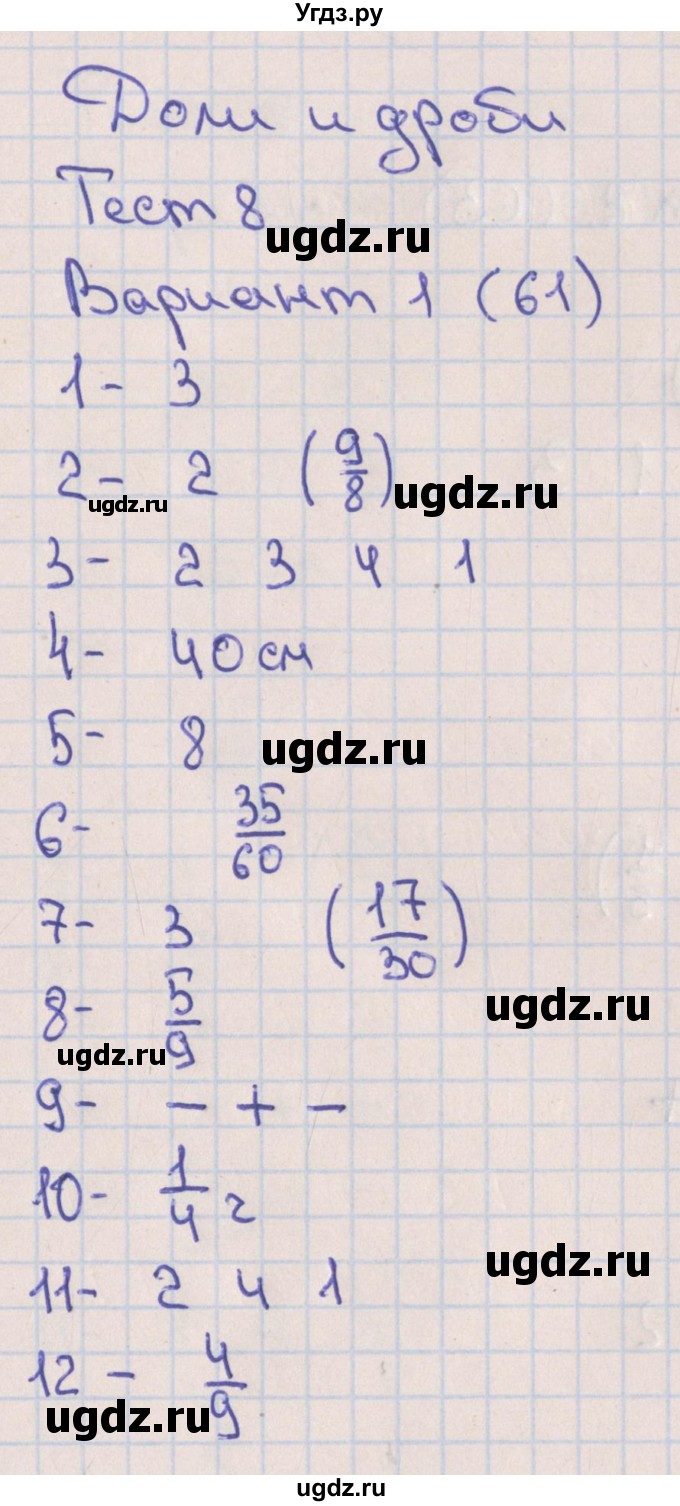 Угдз.ру
Доли и дроби
Тест 8
ugdz.ru
Вариант 1 (61)
1- 3
2- 2 (9/8)
ugdz.ru
ugdz.ru
3- 2 3 4 1
4- 40 см
5- 8
ugdz.ru
6- 35/60
7- 3 (17/30)
ugdz.ru
8- 5/9
ugdz.ru
9- - + -
10- 1/4 г
ugdz.ru
11- 2 4 1
12 - 4/9
ugdz.ru
ugdz.ru